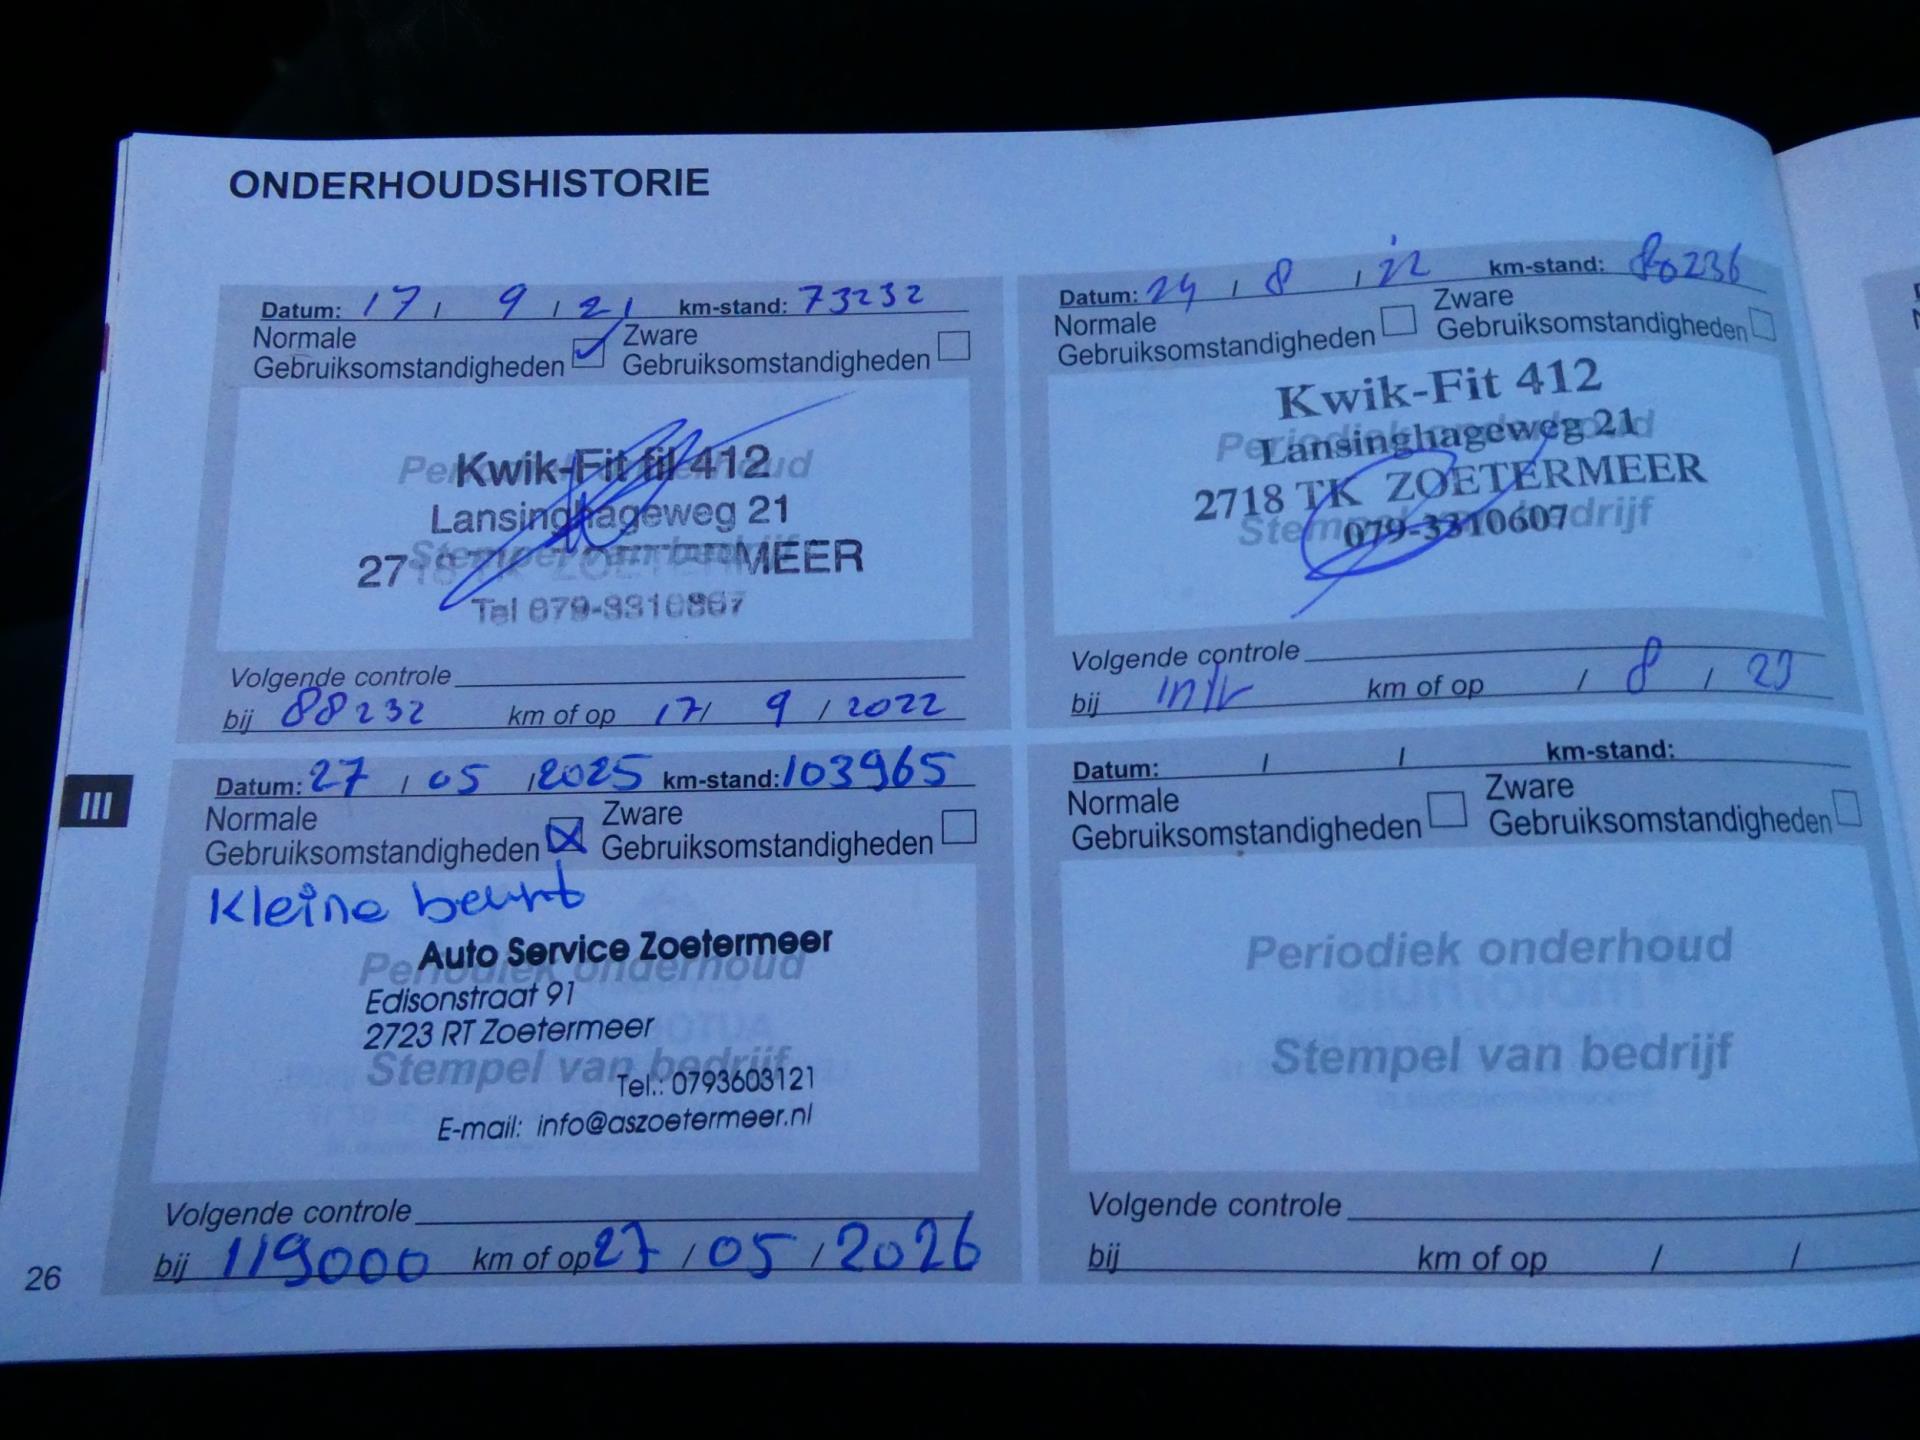 ONDERHOUDSHISTORIE
Datum: 17 / 9 / 21 km-stand: 73232
Normale Gebruiksomstandigheden Zware Gebruiksomstandigheden
Periodiek onderhoud
Kwik-Fit fil 412
Lansinghageweg 21
Stempel van bedrijf
2718 TK ZOETERMEER
Tel 079-3310607
Volgende controle
bij 88232 km of op 17 / 9 / 2022
Datum: 24 / 8 / 22 km-stand: 80236
Normale Gebruiksomstandigheden Zware Gebruiksomstandigheden
Kwik-Fit 412
Periodiek onderhoud
Lansinghageweg 21
2718 TK ZOETERMEER
Stempel van bedrijf
079-3310607
Volgende controle
bij km of op / 8 / 23
III
Datum: 27 / 05 / 2025 km-stand: 103965
Normale Gebruiksomstandigheden Zware Gebruiksomstandigheden
Kleine beurt
Auto Service Zoetermeer
Periodiek onderhoud
Edisonstraat 91
2723 RT Zoetermeer
Stempel van bedrijf
Tel.: 0793603121
E-mail: info@aszoetermeer.nl
Volgende controle
bij 119000 km of op 27 / 05 / 2026
Datum: / / km-stand:
Normale Gebruiksomstandigheden Zware Gebruiksomstandigheden
Periodiek onderhoud
Stempel van bedrijf
Volgende controle
bij km of op / /
26